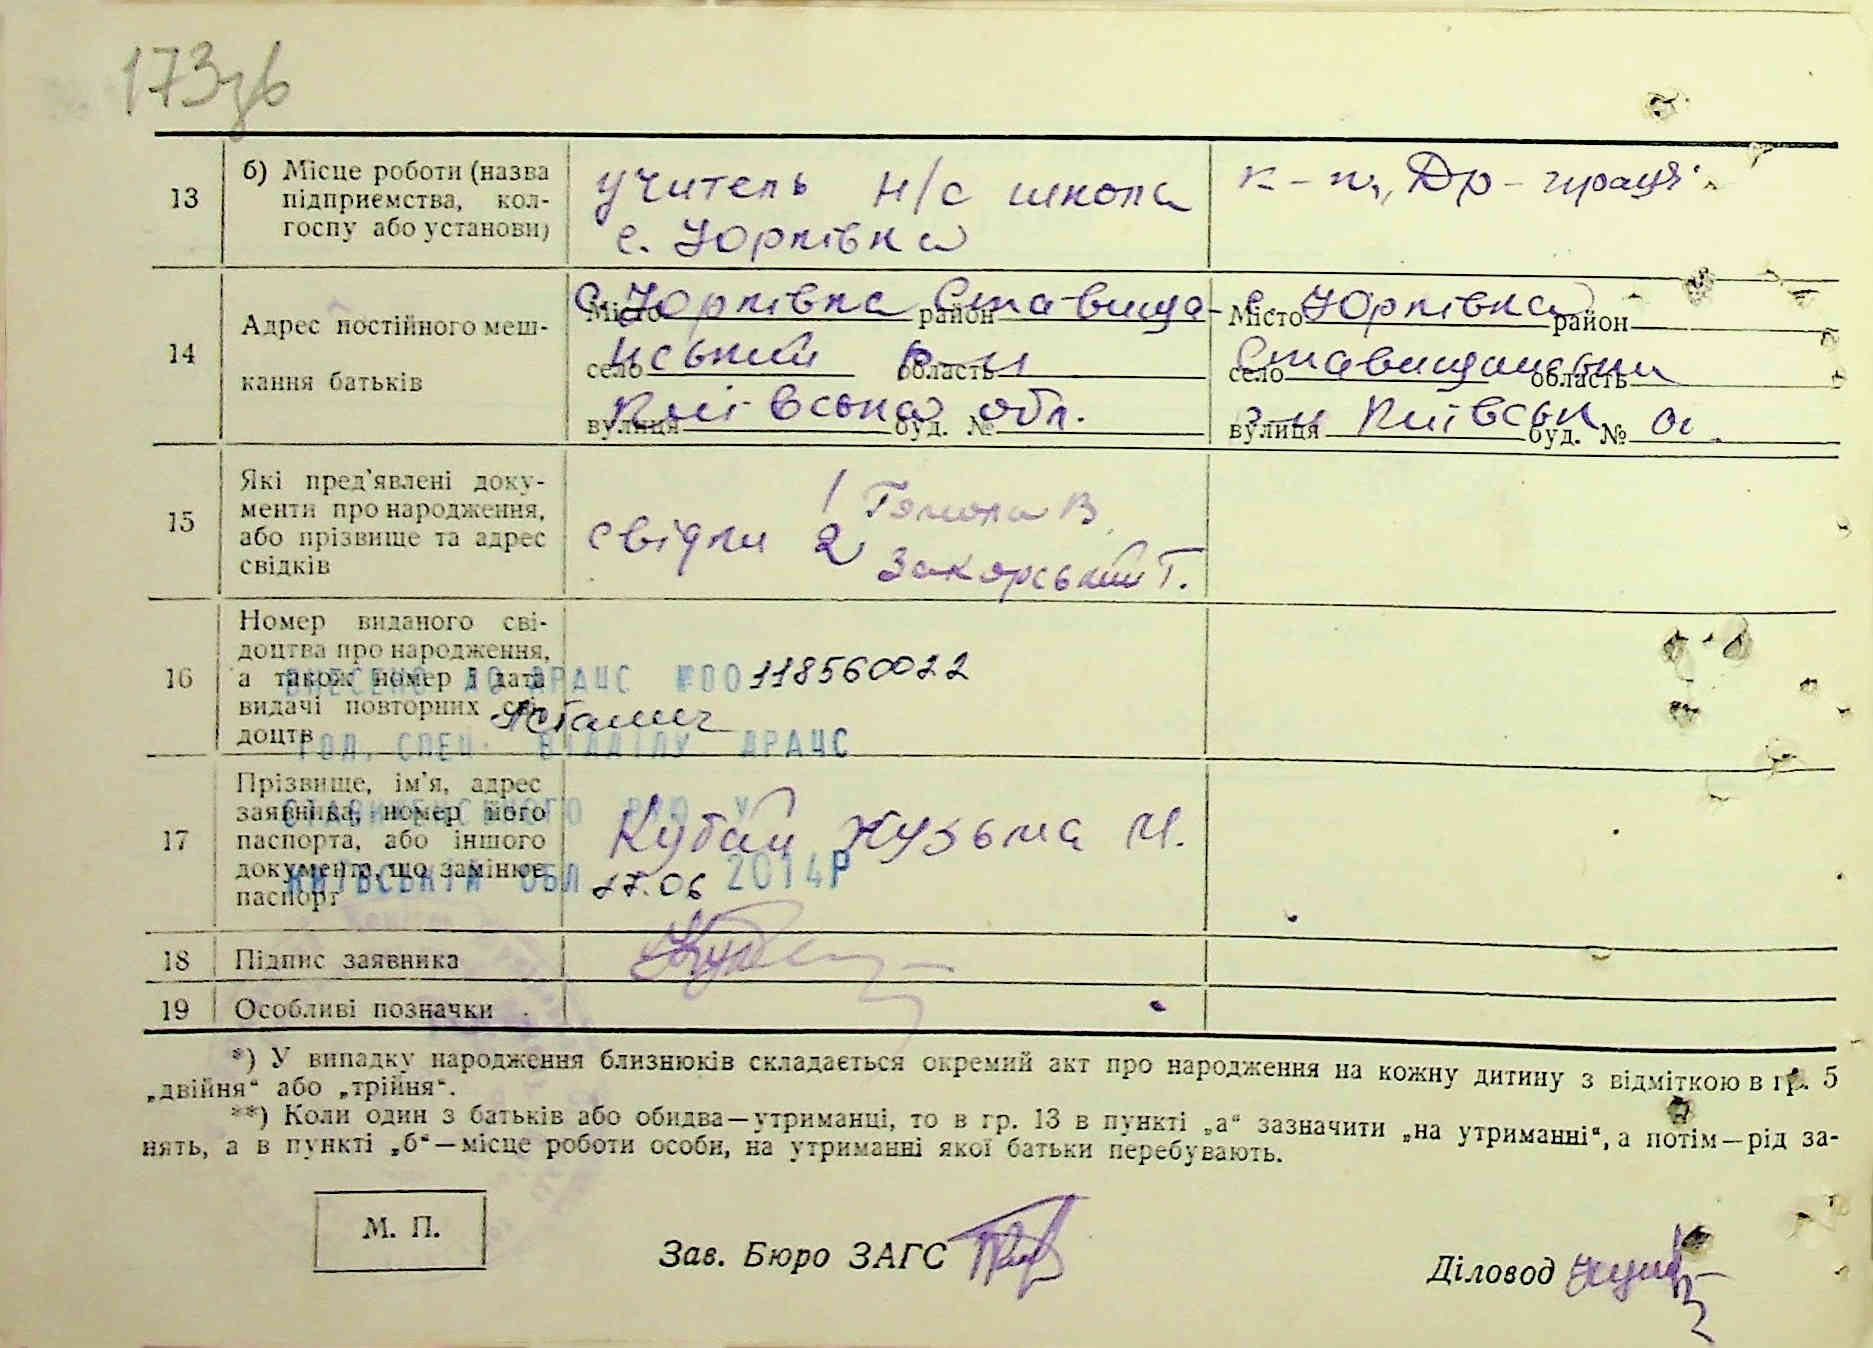 173зв
13 б) Місце роботи (назва підприємства, кол-госпу або установи)
учитель н/с школа
с. Юрківка
к-п, Др-праця
14 Адрес постійного меш-
кання батьків
Місто район
село область
вулиця буд. №
с. Юрківка Ставища-
нський р-н
Київська обл.
Місто район
село область
вулиця буд. №
с. Юрківка
Ставищанський
р-н Київськ о.
15 Які пред'явлені доку-
менти про народження,
або прізвище та адрес
свідків
свідки 1 В.
2 Закорський Г.
16 Номер виданого сві-
доцтва про народження,
а також номер і дата
видачі повторних сві-
доцтв
ВНЕСЕНО ДО ДРАЦС №00118560022
ГОЛ. СПЕЦ. ВІДДІЛУ ДРАЦС
17 Прізвище, ім'я, адрес
заявника, номер його
паспорта, або іншого
документа, що замінює
паспорт
СТАВИЩЕНСЬКОГО РУЮ У
КИЇВСЬКІЙ ОБЛ 17.06 2014Р
Кубай Кузьма М.
18 Підпис заявника
19 Особливі позначки
*) У випадку народження близнюків складається окремий акт про народження на кожну дитину з відміткою в гр. 5
„двійня“ або „трійня“.
**) Коли один з батьків або обидва—утриманці, то в гр. 13 в пункті „а“ зазначити „на утриманні“, а потім—рід за-
нять, а в пункті „б“—місце роботи особи, на утриманні якої батьки перебувають.
М. П.
Зав. Бюро ЗАГС
Діловод